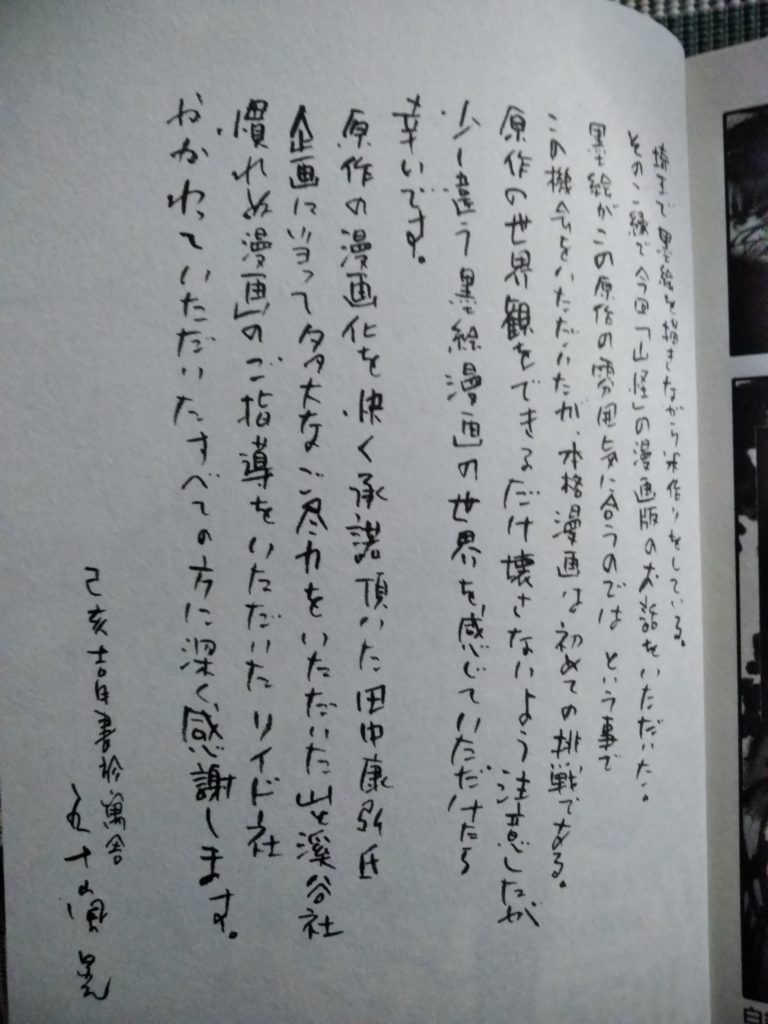 埼玉で墨絵を描きながら米作りをしている。
そのご縁で今回「山怪」の漫画版のお話をいただいた。
墨絵がこの原作の雰囲気に合うのでは という事で
この機会をいただいたが、本格漫画は初めての挑戦である。
原作の世界観をできるだけ壊さないよう注意したが
少し違う墨絵漫画の世界を感じていただけたら
幸いです。
原作の漫画化を快く承諾頂いた田中康弘氏
企画に当って多大なご尽力をいただいた山と溪谷社
慣れぬ漫画のご指導をいただいたリイド社
おかわっていただいたすべての方に深く感謝します。
己亥吉日書於寓舎
五十嵐晃
白